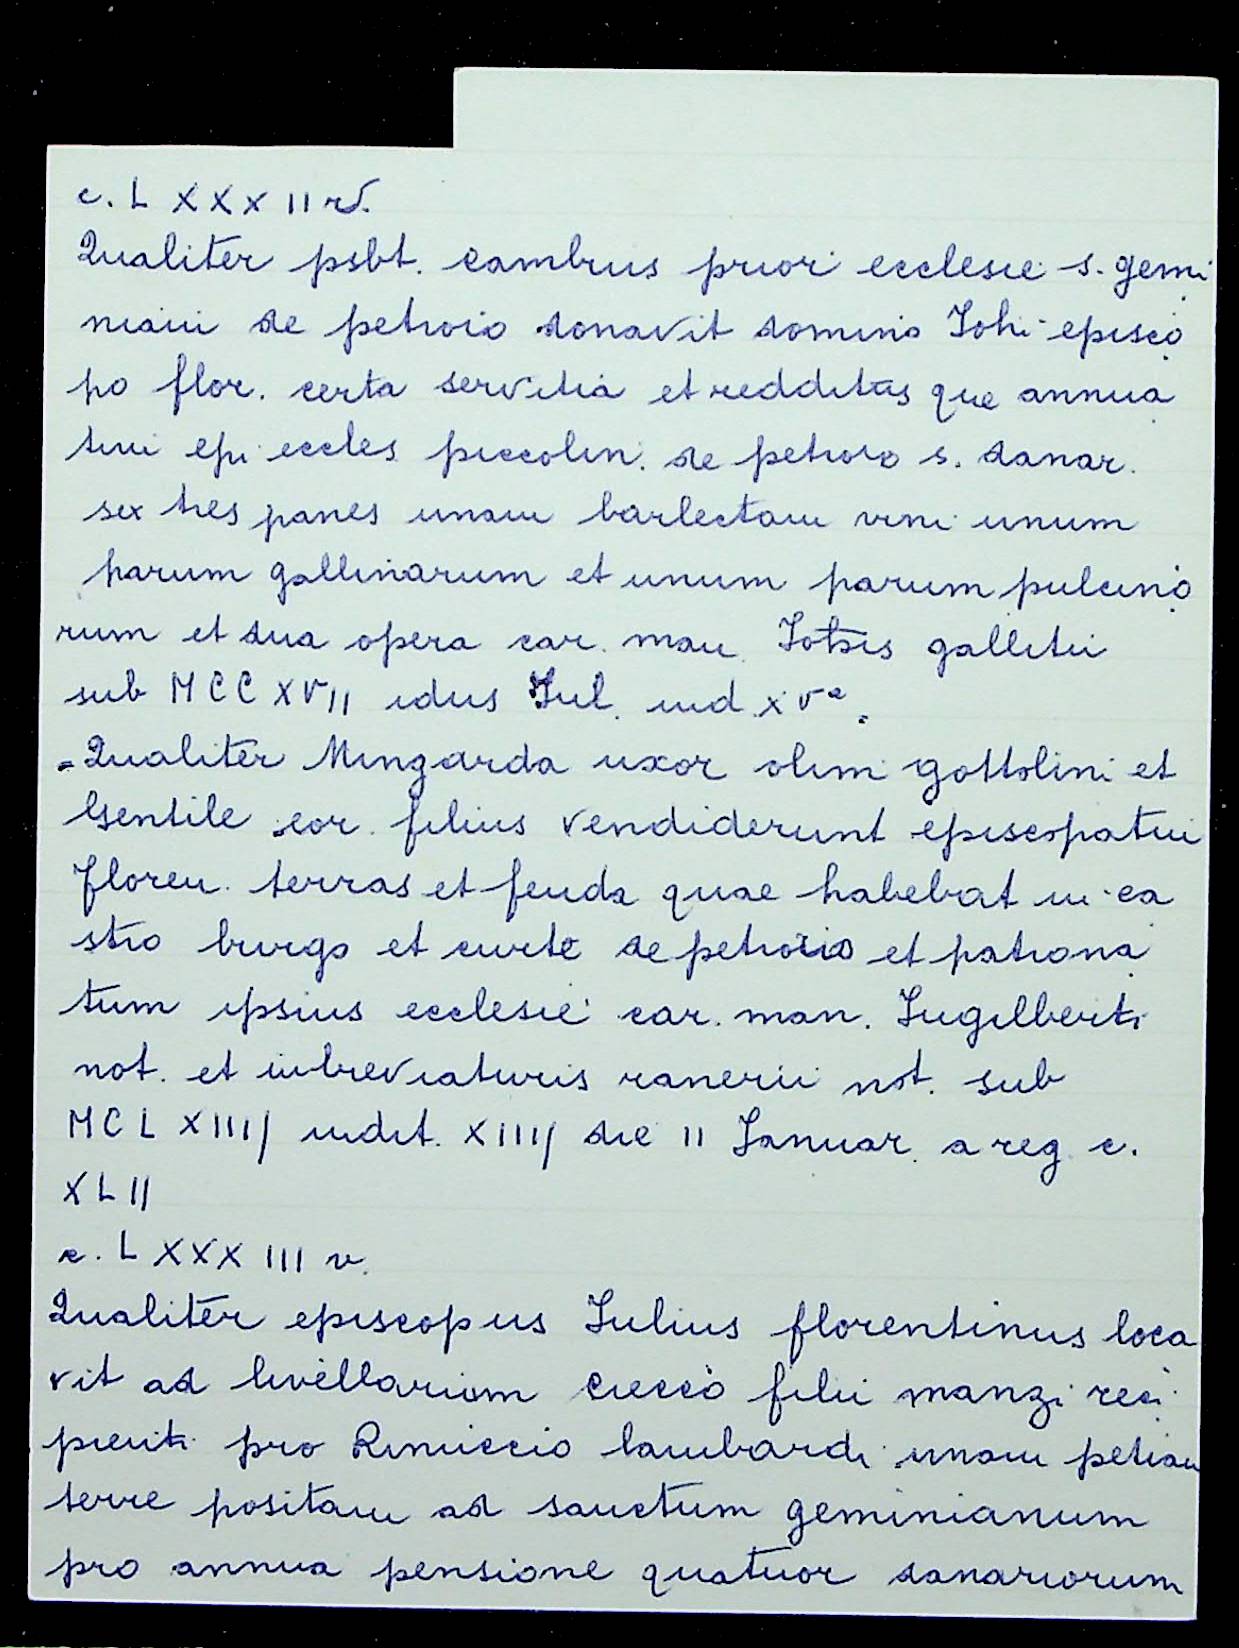 c. L X X X II v.
Qualiter psbt. Cambius prior ecclesie s. gemi
niani de petroio donavit domino Iohi episco
po flor. certa servitia et redditus que annua
tim epi eccles piccolin. de petroio s. danar.
sex tres panes unam barlectam vini unum
parum gallinarum et unum parum pulcino
rum et dua opera car. man. Iohis galletti
sub MCCXVII idus Iul. ind. XVa.
= Qualiter Mingarda uxor olim gottolini et
Gentile eor. filius vendiderunt episcopatui
floren. terras et feuda quae habebat in ca
stro burgo et curte de petroio et patrona
tum ipsius ecclesie car. man. Iugilberti
not. et imbreviaturis ranerii not. sub
MCLXIIII indit. XIIII die II Ianuar. a reg. c.
XLII
c. L XXX III v.
Qualiter episcopus Iulius florentinus loca
vit ad livellariam Ciecco filii manzi reci
pienti pro Rinuccio lambardi unam petiam
terre positam ad sanctum geminianum
pro annua pensione quatuor danariorum